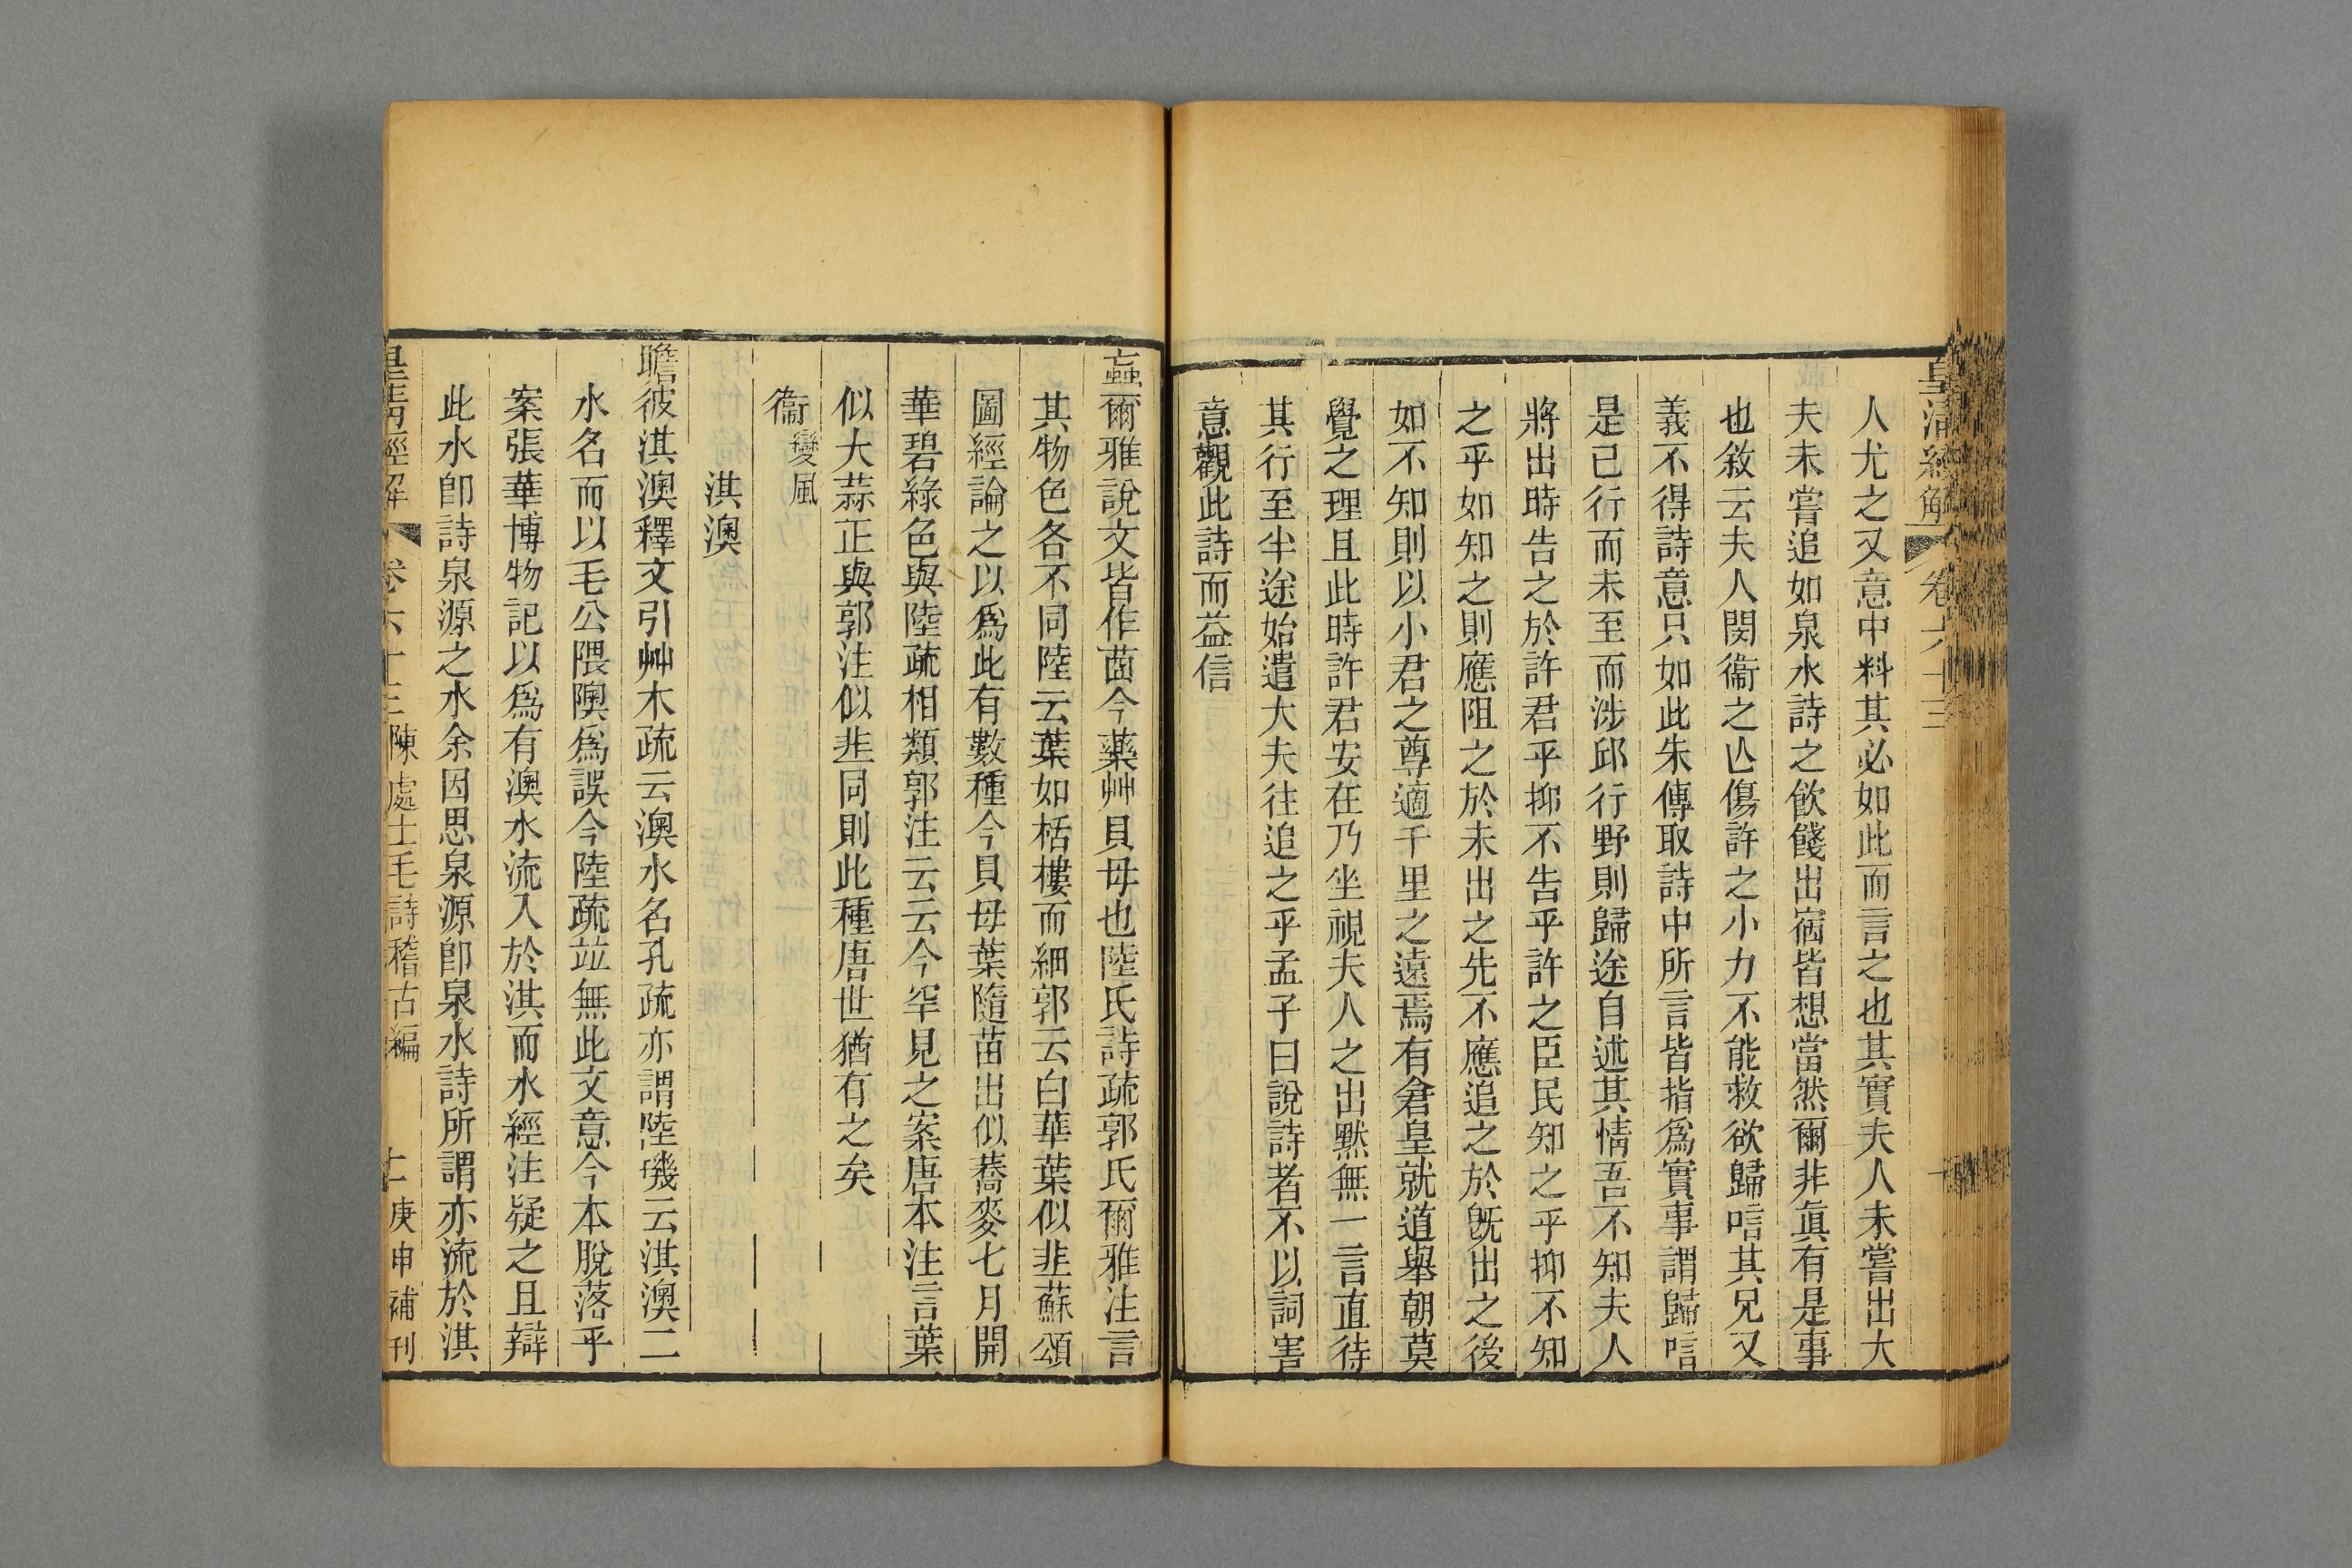 皇清經解 卷六十三
人尤之又意中料其必如此而言之也其實夫人未嘗出大
夫未嘗追如泉水詩之飲餞出宿皆想當然爾非眞有是事
也敘云夫人閔衞之亾傷許之小力不能救欲歸唁其兄又
義不得詩意只如此朱傳取詩中所言皆指爲實事謂歸唁
是已行而未至而涉邱行野則歸途自述其情吾不知夫人
將出時告之於許君乎抑不告乎許之臣民知之乎抑不知
之乎如知之則應阻之於未出之先不應追之於旣出之後
如不知則以小君之尊適千里之遠焉有倉皇就道舉朝莫
覺之理且此時許君安在乃坐視夫人之出默無一言直待
其行至半途始遣大夫往追之乎孟子曰說詩者不以詞害
意觀此詩而益信
蝱爾雅說文皆作莔今藥艸貝母也陸氏詩疏郭氏爾雅注言
其物色各不同陸云葉如栝樓而細郭云白華葉似韭蘇頌
圖經論之以爲此有數種今貝母葉隨苗出似蕎麥七月開
華碧綠色與陸疏相類郭注云云今罕見之案唐本注言葉
似大蒜正與郭注似韭同則此種唐世猶有之矣
衞變風
淇澳
瞻彼淇澳釋文引艸木疏云澳水名孔疏亦謂陸璣云淇澳二
水名而以毛公隈隩爲誤今陸疏竝無此文意今本脫落乎
案張華博物記以爲有澳水流入於淇而水經注疑之且辯
此水卽詩泉源之水余因思泉源卽泉水詩所謂亦流於淇
皇清經解 卷六十三 陳處士毛詩稽古編 庚申補刊